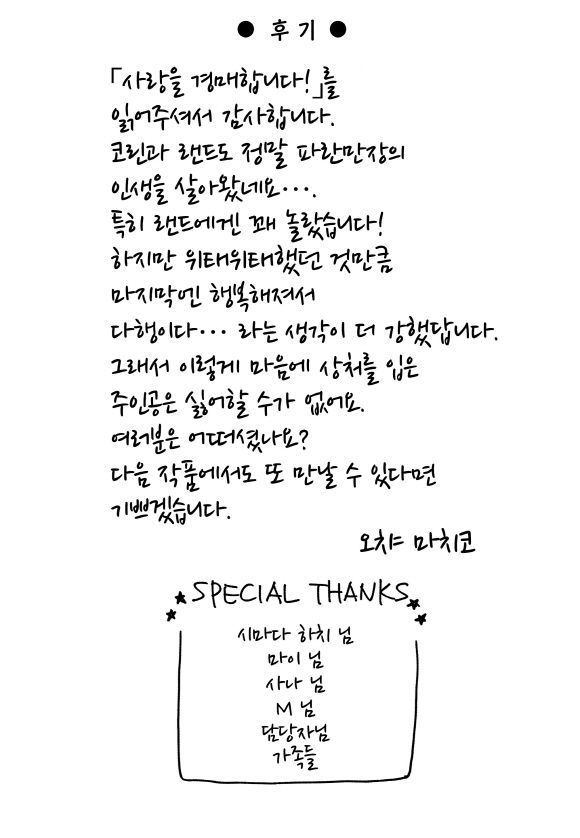 ● 후기 ●
「사랑을 경매합니다!」를
읽어주셔서 감사합니다.
코린과 랜드도 정말 파란만장의
인생을 살아왔네요···.
특히 랜드에겐 꽤 놀랐습니다!
하지만 위태위태했던 것만큼
마지막엔 행복해져서
다행이다··· 라는 생각이 더 강했답니다.
그래서 이렇게 마음에 상처를 입은
주인공은 싫어할 수가 없어요.
여러분은 어떠셨나요?
다음 작품에서도 또 만날 수 있다면
기쁘겠습니다.
오챠 마치코
★SPECIAL THANKS★
시마다 하치 님
마이 님
사나 님
M 님
담당자님
가족들